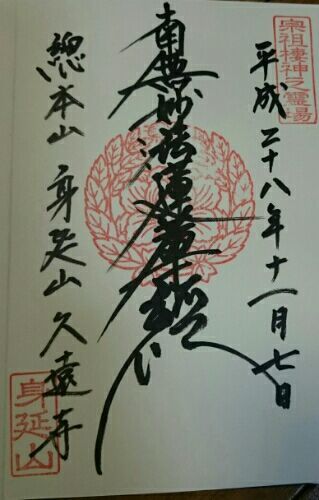 宗祖棲神之霊場
平成二十八年十一月七日
南無妙法蓮華経
総本山 身延山 久遠寺
身延山